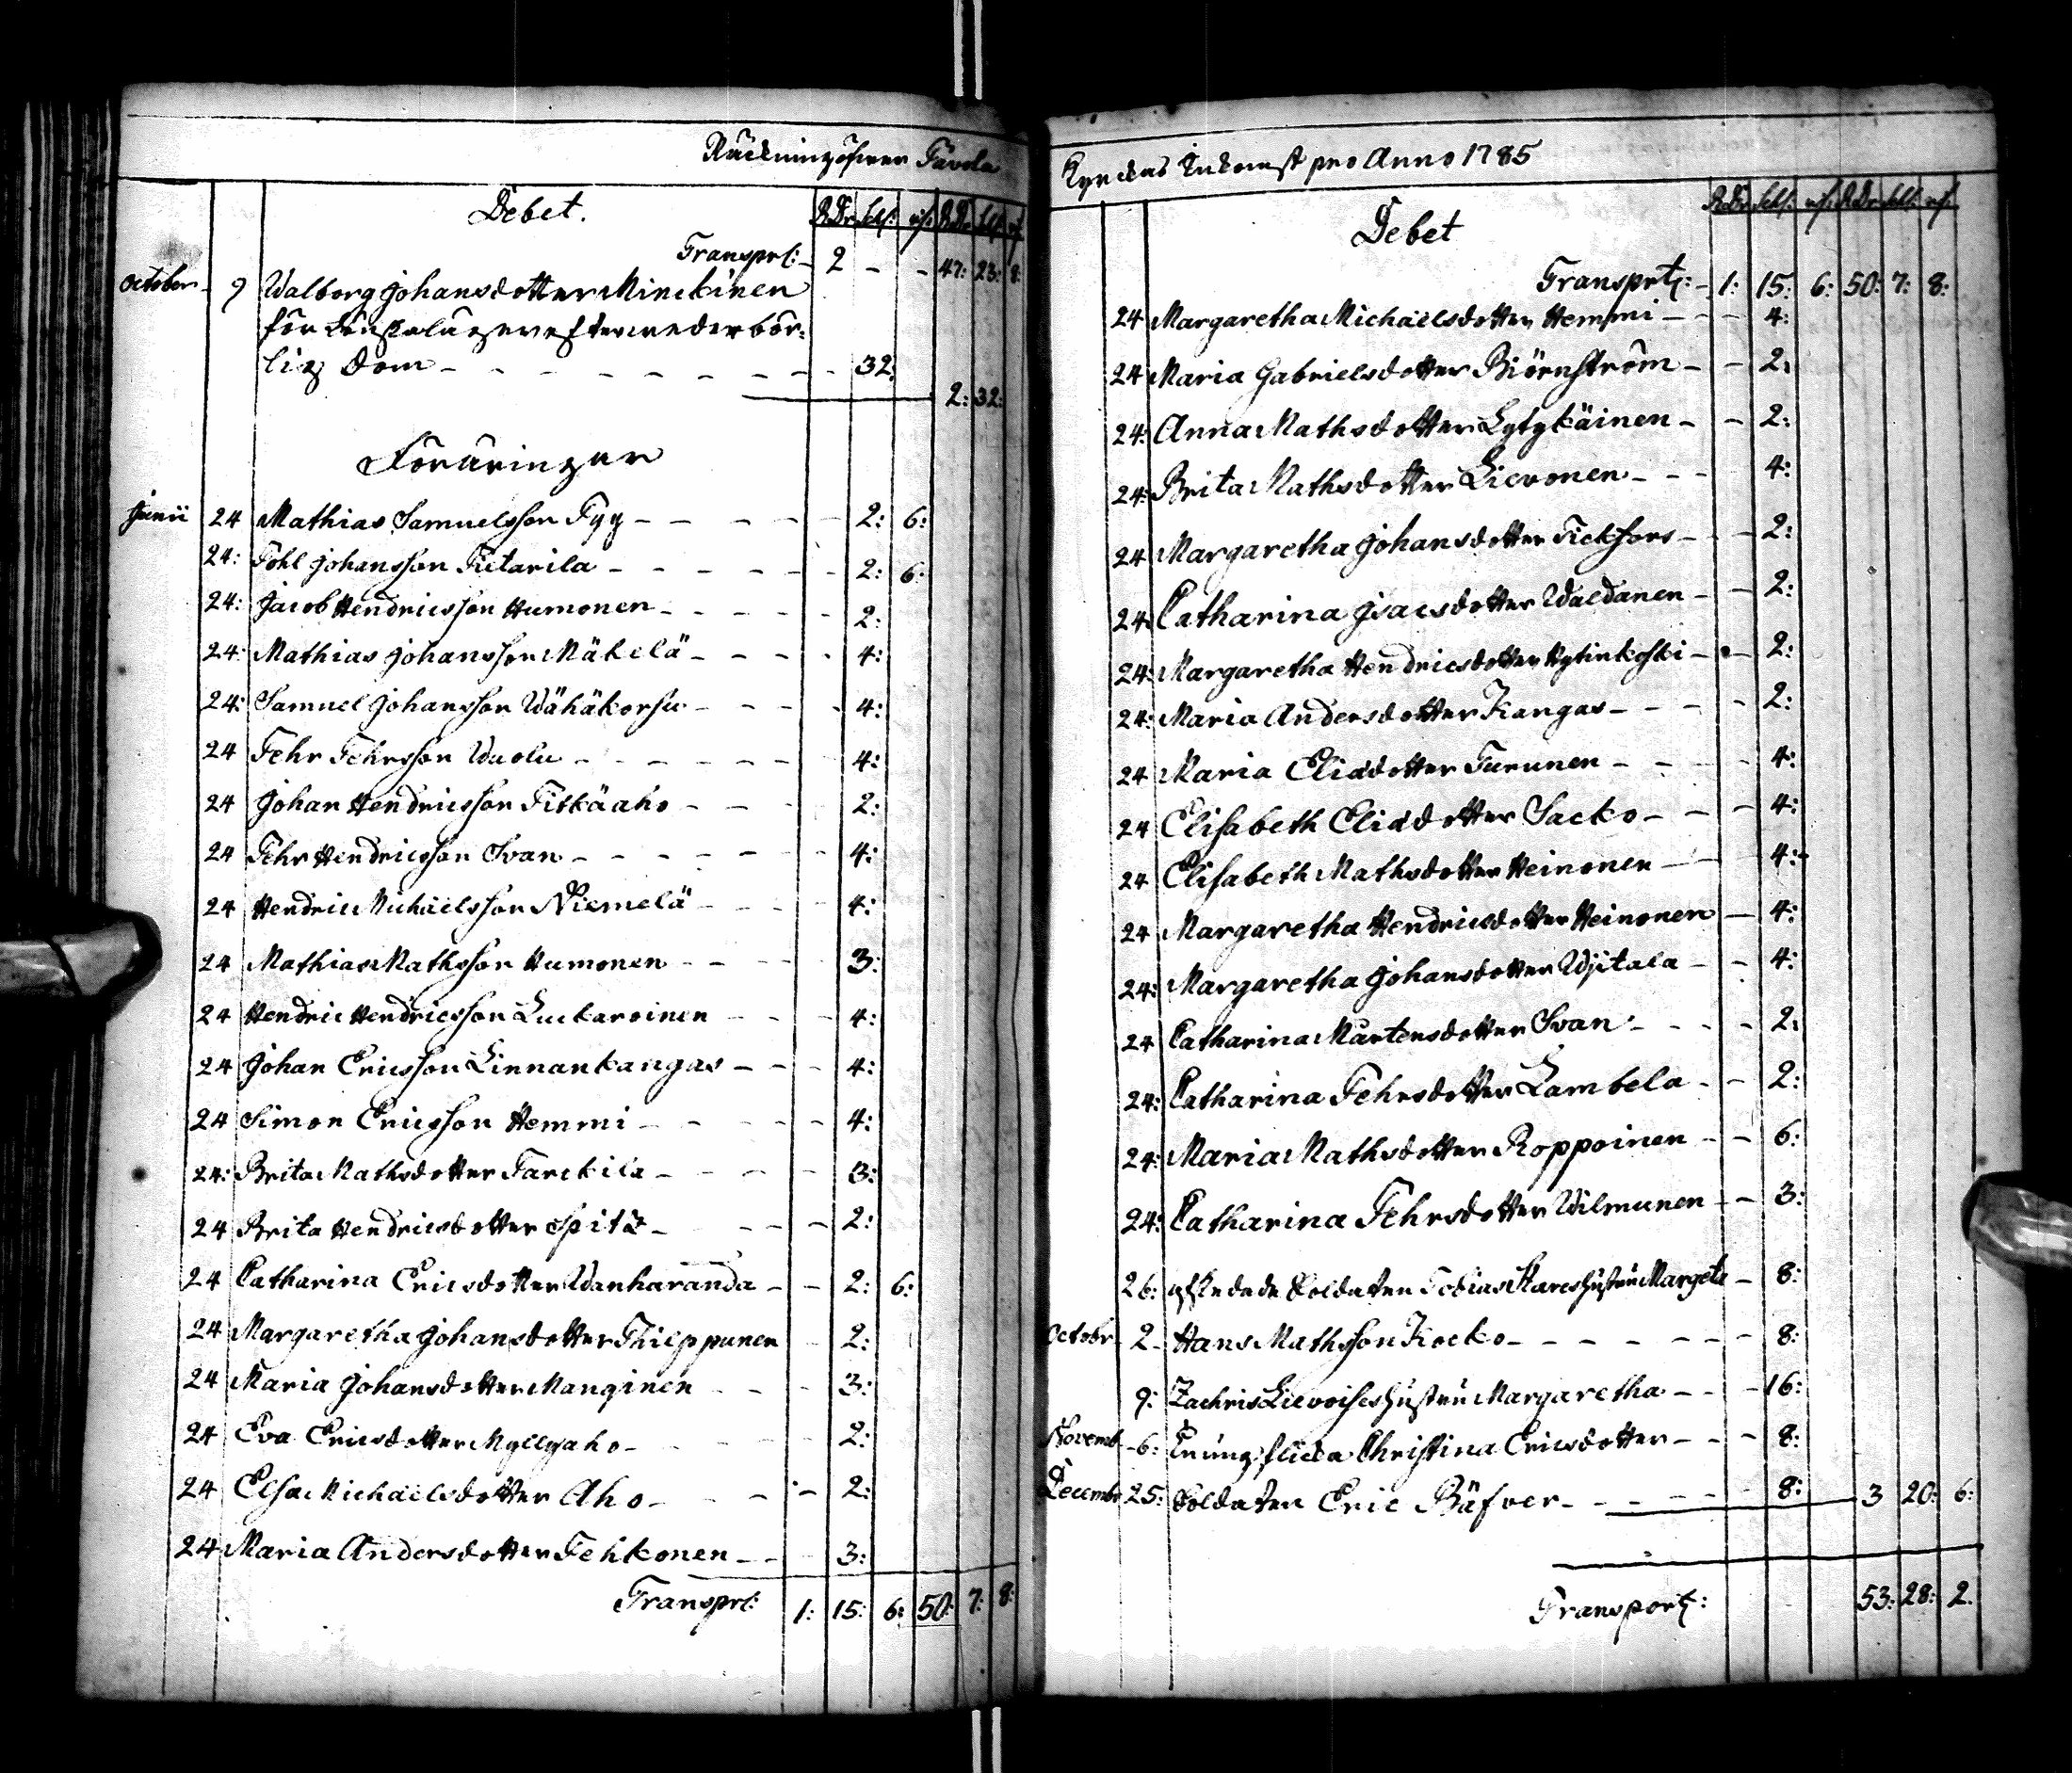 Räckning öfwer Tävola
Debet.
RDr sch: rs: RDr sch: rs
Transprt: 2 - - 47: 23: 8:
October 9 Walborg Johansdotter Minckinen
för
lig Dom - - - 32:
2: 32:
Föräringar
Junii 24 Mathias Samuelsson Tyy - - - 2: 6:
24: Påhl Johansson - - - 2: 6:
24: Jacob Hendricsson Humonen - - - 2:
24: Mathias Johansson Mäkelä - - - 4:
24: Samuel Johansson Wähäkorsu - - - 4:
24 Pehr Pehrsson - - - 4:
24 Johan Hendricsson Pitkäaho - - - 2:
24 Pehr Hendricsson Svan - - - 4:
24 Hendric Michaelsson Niemelä - - - 4:
24 Mathias Mathsson Humonen - - - 3:
24 Hendric Hendricsson Luckaroinen - - - 4:
24 Johan Ericsson Linnankangas - - - 4:
24 Simon Ericsson Hemmi - - - 4:
24: Brita Mathsdotter Tarckila - - - 3:
24 Brita Hendricsdotter - - - 2:
24 Catharina Ericsdotter Wanharanda - - 2: 6:
24 Margaretha Johansdotter 2:
24 Maria Johansdotter Manginen - - - 3:
24 Eva Ericsdotter Myllyaho - - - 2:
24 Elsa Michaelsdotter Aho - - - 2:
24 Maria Andersdotter Pehkonen - - 3:
Transprt: 1: 15: 6: 50: 7: 8:
Kyrckas Inkomst pro Anno 1785
RDr sch: rs: RDr sch: rs:
Debet
Transprt: 1: 15: 6: 50: 7: 8:
24 Margaretha Michaelsdotter Hemmi - - - 4:
24 Maria Gabrielsdotter Biörnström - - 2:
24: Anna Mathsdotter Lytykäinen - - 2:
24: Brita Mathsdotter Lievonen - - - 4:
24 Margaretha Johansdotter - - 2:
24: Catharina Isacsdotter - - 2:
24: Margaretha Hendricsdotter Hytinkoski - - 2:
24: Maria Andersdotter Kangas - - - 2:
24 Maria Eliædotter Turunen - - - 4:
24 Elisabeth Eliædotter Sacko - - 4:
24 Elisabeth Mathsdotter Heinonen - - 4:
24 Margaretha Hendricsdotter Heinonen - 4:
24: Margaretha Johansdotter - - 4:
24 Catharina Mårtensdotter Svan - - - 2:
24: Catharina Pehrsdotter Lambela - - 2:
24: Maria Mathsdotter Roppoinen - - 6:
24: Catharina Pehrsdotter Wilmunen - - 3:
26: afskedade Soldaten Tobias Hares Hustru Margeta - 8:
Octobr 2 Hans Mathsson Kocko - - - 8:
9: Zachris Lievoises Hustru Margaretha - - 16:
Novemb 6: flicka Christina Ericsdotter - - 8:
Decembr 25: Soldaten Eric Bäfver - - - 8: 3 20: 6:
Transport: 53: 28: 2.